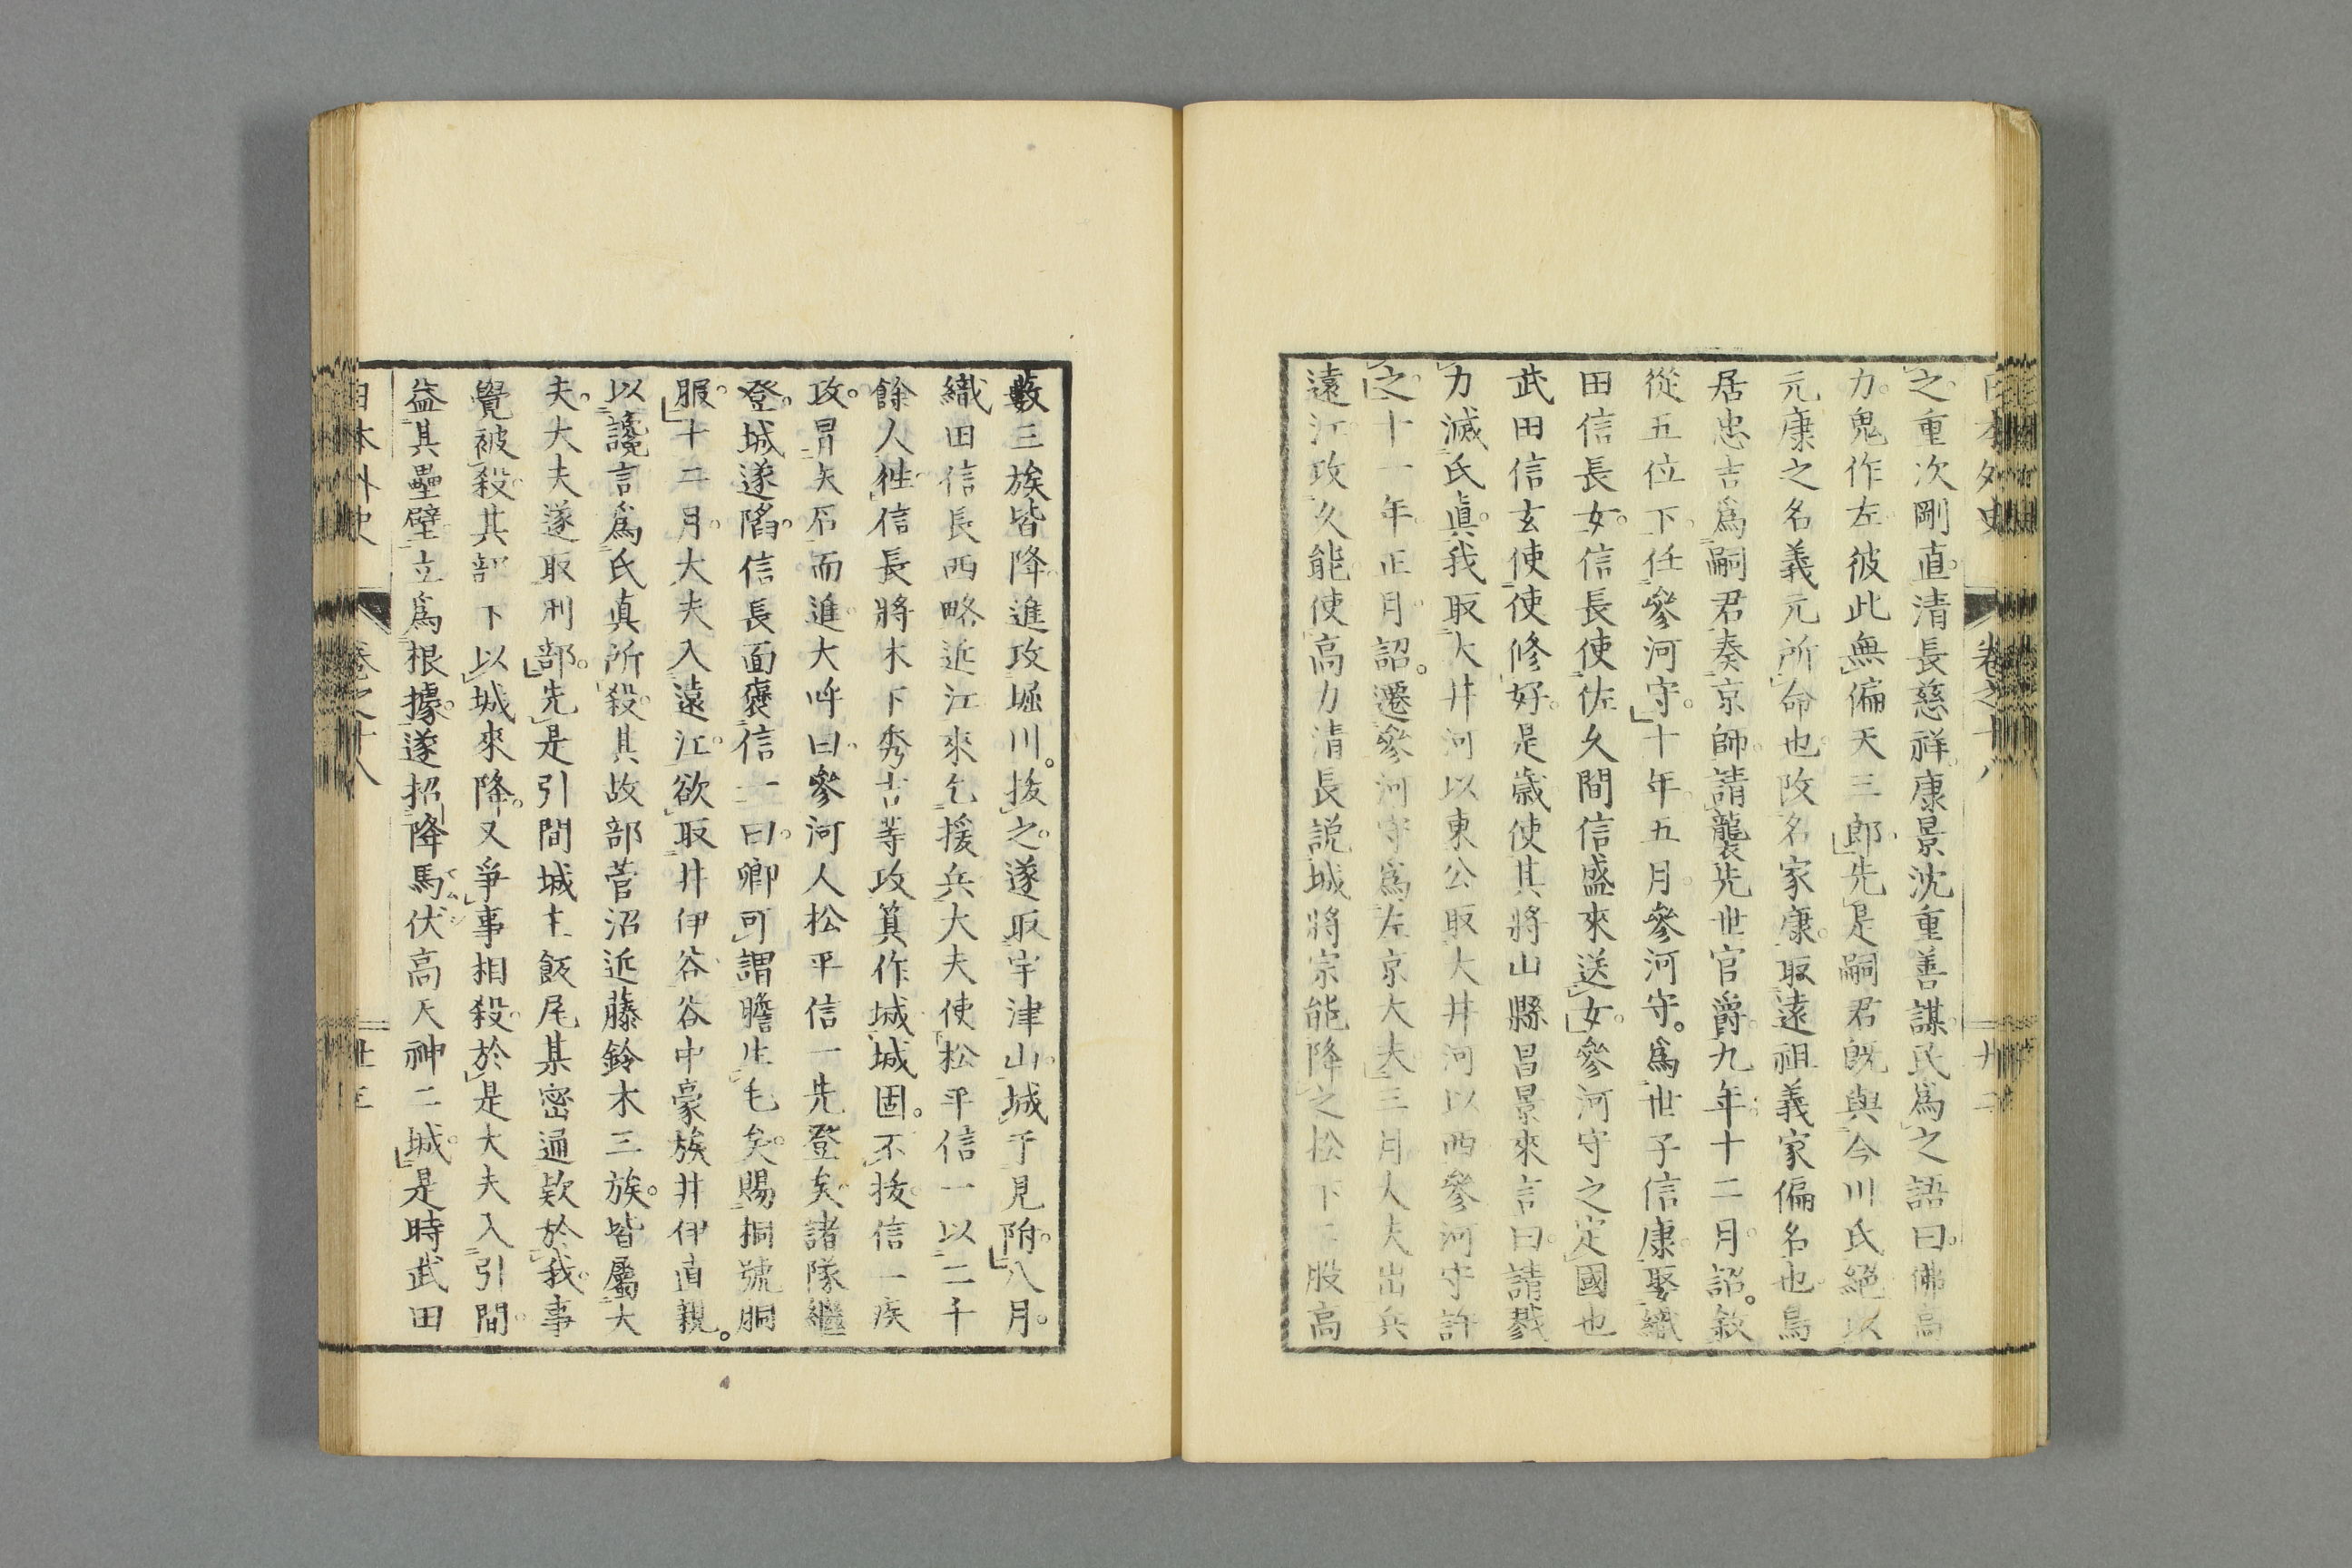 之重次剛直。清長慈祥。康景沈重善謀。民爲之語曰。佛高
力。鬼作左。彼此無偏天三郎。先是嗣君既與今川氏絶。以
元康之名義元所命也。改名家康。取遠祖義家偏名也。鳥
居忠吉爲嗣君奏京師。請襲先世官爵。九年十二月。詔。敘
從五位下。任參河守。十年五月。參河守。爲世子信康。娶織
田信長女。信長使佐久間信盛來送女。參河守之定國也
武田信玄使使修好。是歳使其將山縣昌景來言曰。請戮
力滅氏眞。我取大井河以東。公取大井河以西。參河守許
之。十一年。正月。詔。遷參河守爲左京大夫。三月大夫出兵
遠江。攻久能。使高力清長説城將宗能降之。松下二股高
藪三族皆降。進攻堀川。拔之。遂取宇津山城。于見附。八月。
織田信長西略近江。來乞援兵。大夫使松平信一以二千
餘人徃。信長將木下秀吉等攻箕作城。城固。不拔。信一疾
攻。冒矢石而進。大呼曰。參河人松平信一先登矣。諸隊繼
登。城遂陷。信長面褒信一曰。卿可謂膽生毛矣。賜桐號胴
服。十二月。大夫入遠江。欲取井伊谷。谷中豪族井伊直親。
以讒言爲氏眞所殺。其故部菅沼近藤鈴木三族。皆屬大
夫。大夫遂取刑部。先是引間城主飯尾某密通欵於我。事
覺被殺。其部下以城來降。又爭事相殺。於是大夫入引間。
益其壘壁。立爲根據。遂招降馬伏高天神二城。是時武田
日本外史 卷之十八